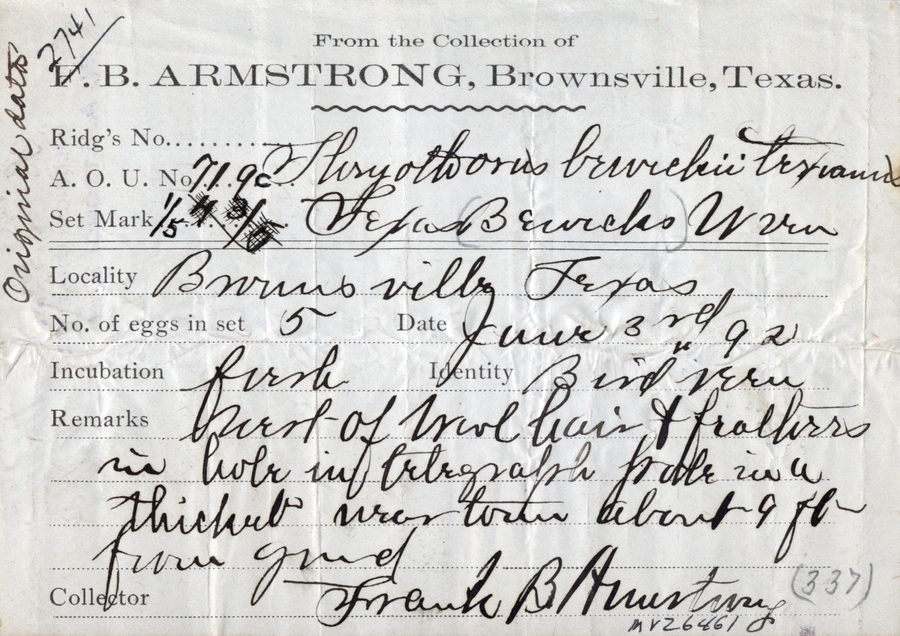 2741
Original data
From the Collection of
F. B. ARMSTRONG, Brownsville, Texas.
Ridg's No.
Thryothorus bewickii texanus
A. O. U. No. 719c
Set Mark 1/5
Texas (Bewicks) Wren
Locality Brownsville Texas
No. of eggs in set 5 Date June 3rd 92
Incubation fresh Identity Bird seen
Remarks Nest of wool hair & feathers
in hole in telegraph pole in a
thicket near town about 9 ft
from grnd
Collector Frank B Armstrong
(337)
MVZ6461